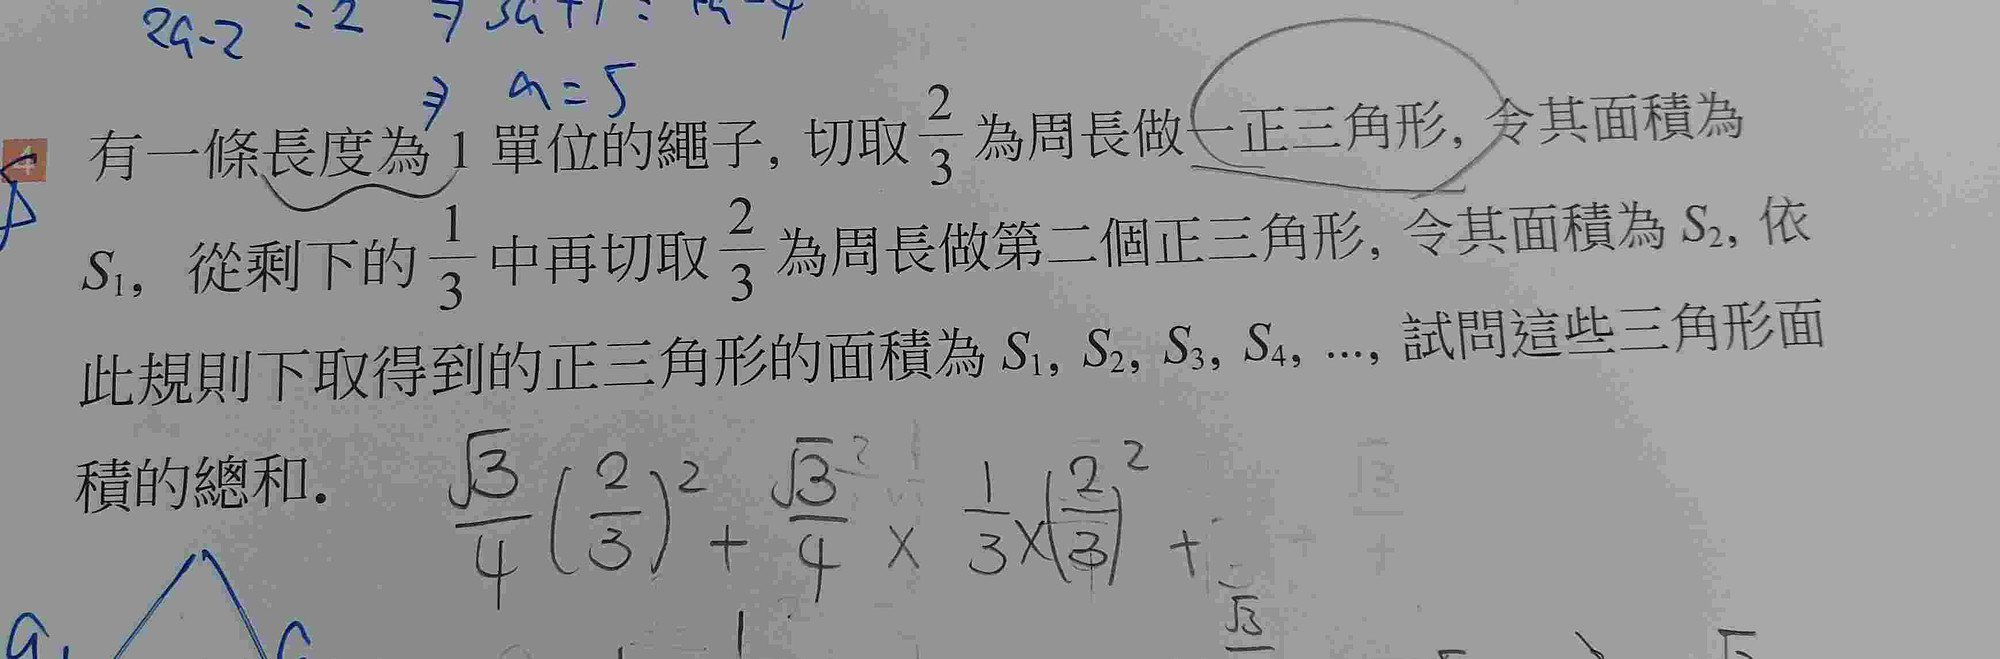 2a-2 = 2 ⇒ 3a+1 =
⇒ a=5
4 有一條長度為 1 單位的繩子, 切取 2/3 為周長做一正三角形, 令其面積為
S₁, 從剩下的 1/3 中再切取 2/3 為周長做第二個正三角形, 令其面積為 S₂, 依
此規則下取得到的正三角形的面積為 S₁, S₂, S₃, S₄, ..., 試問這些三角形面
積的總和.
√3/4 (2/3)² + √3/4 × 1/3 × (2/3)² +
√3
a